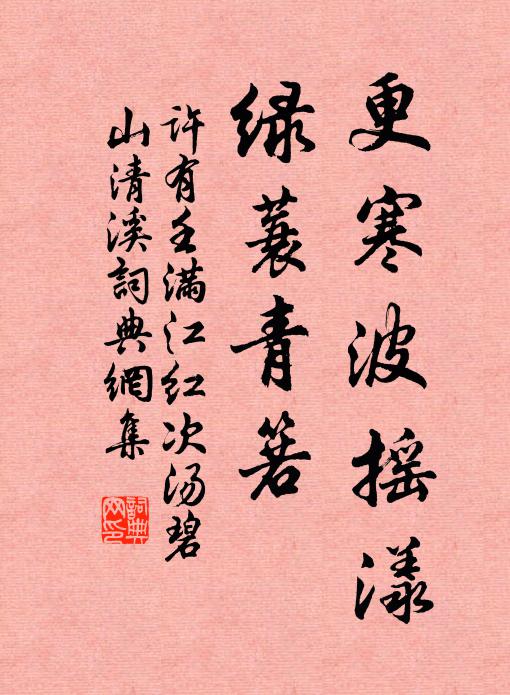 更寒波摇漾
绿蓑青箬
许有壬满江红次汤碧
山清溪词典網集
詞典
网印